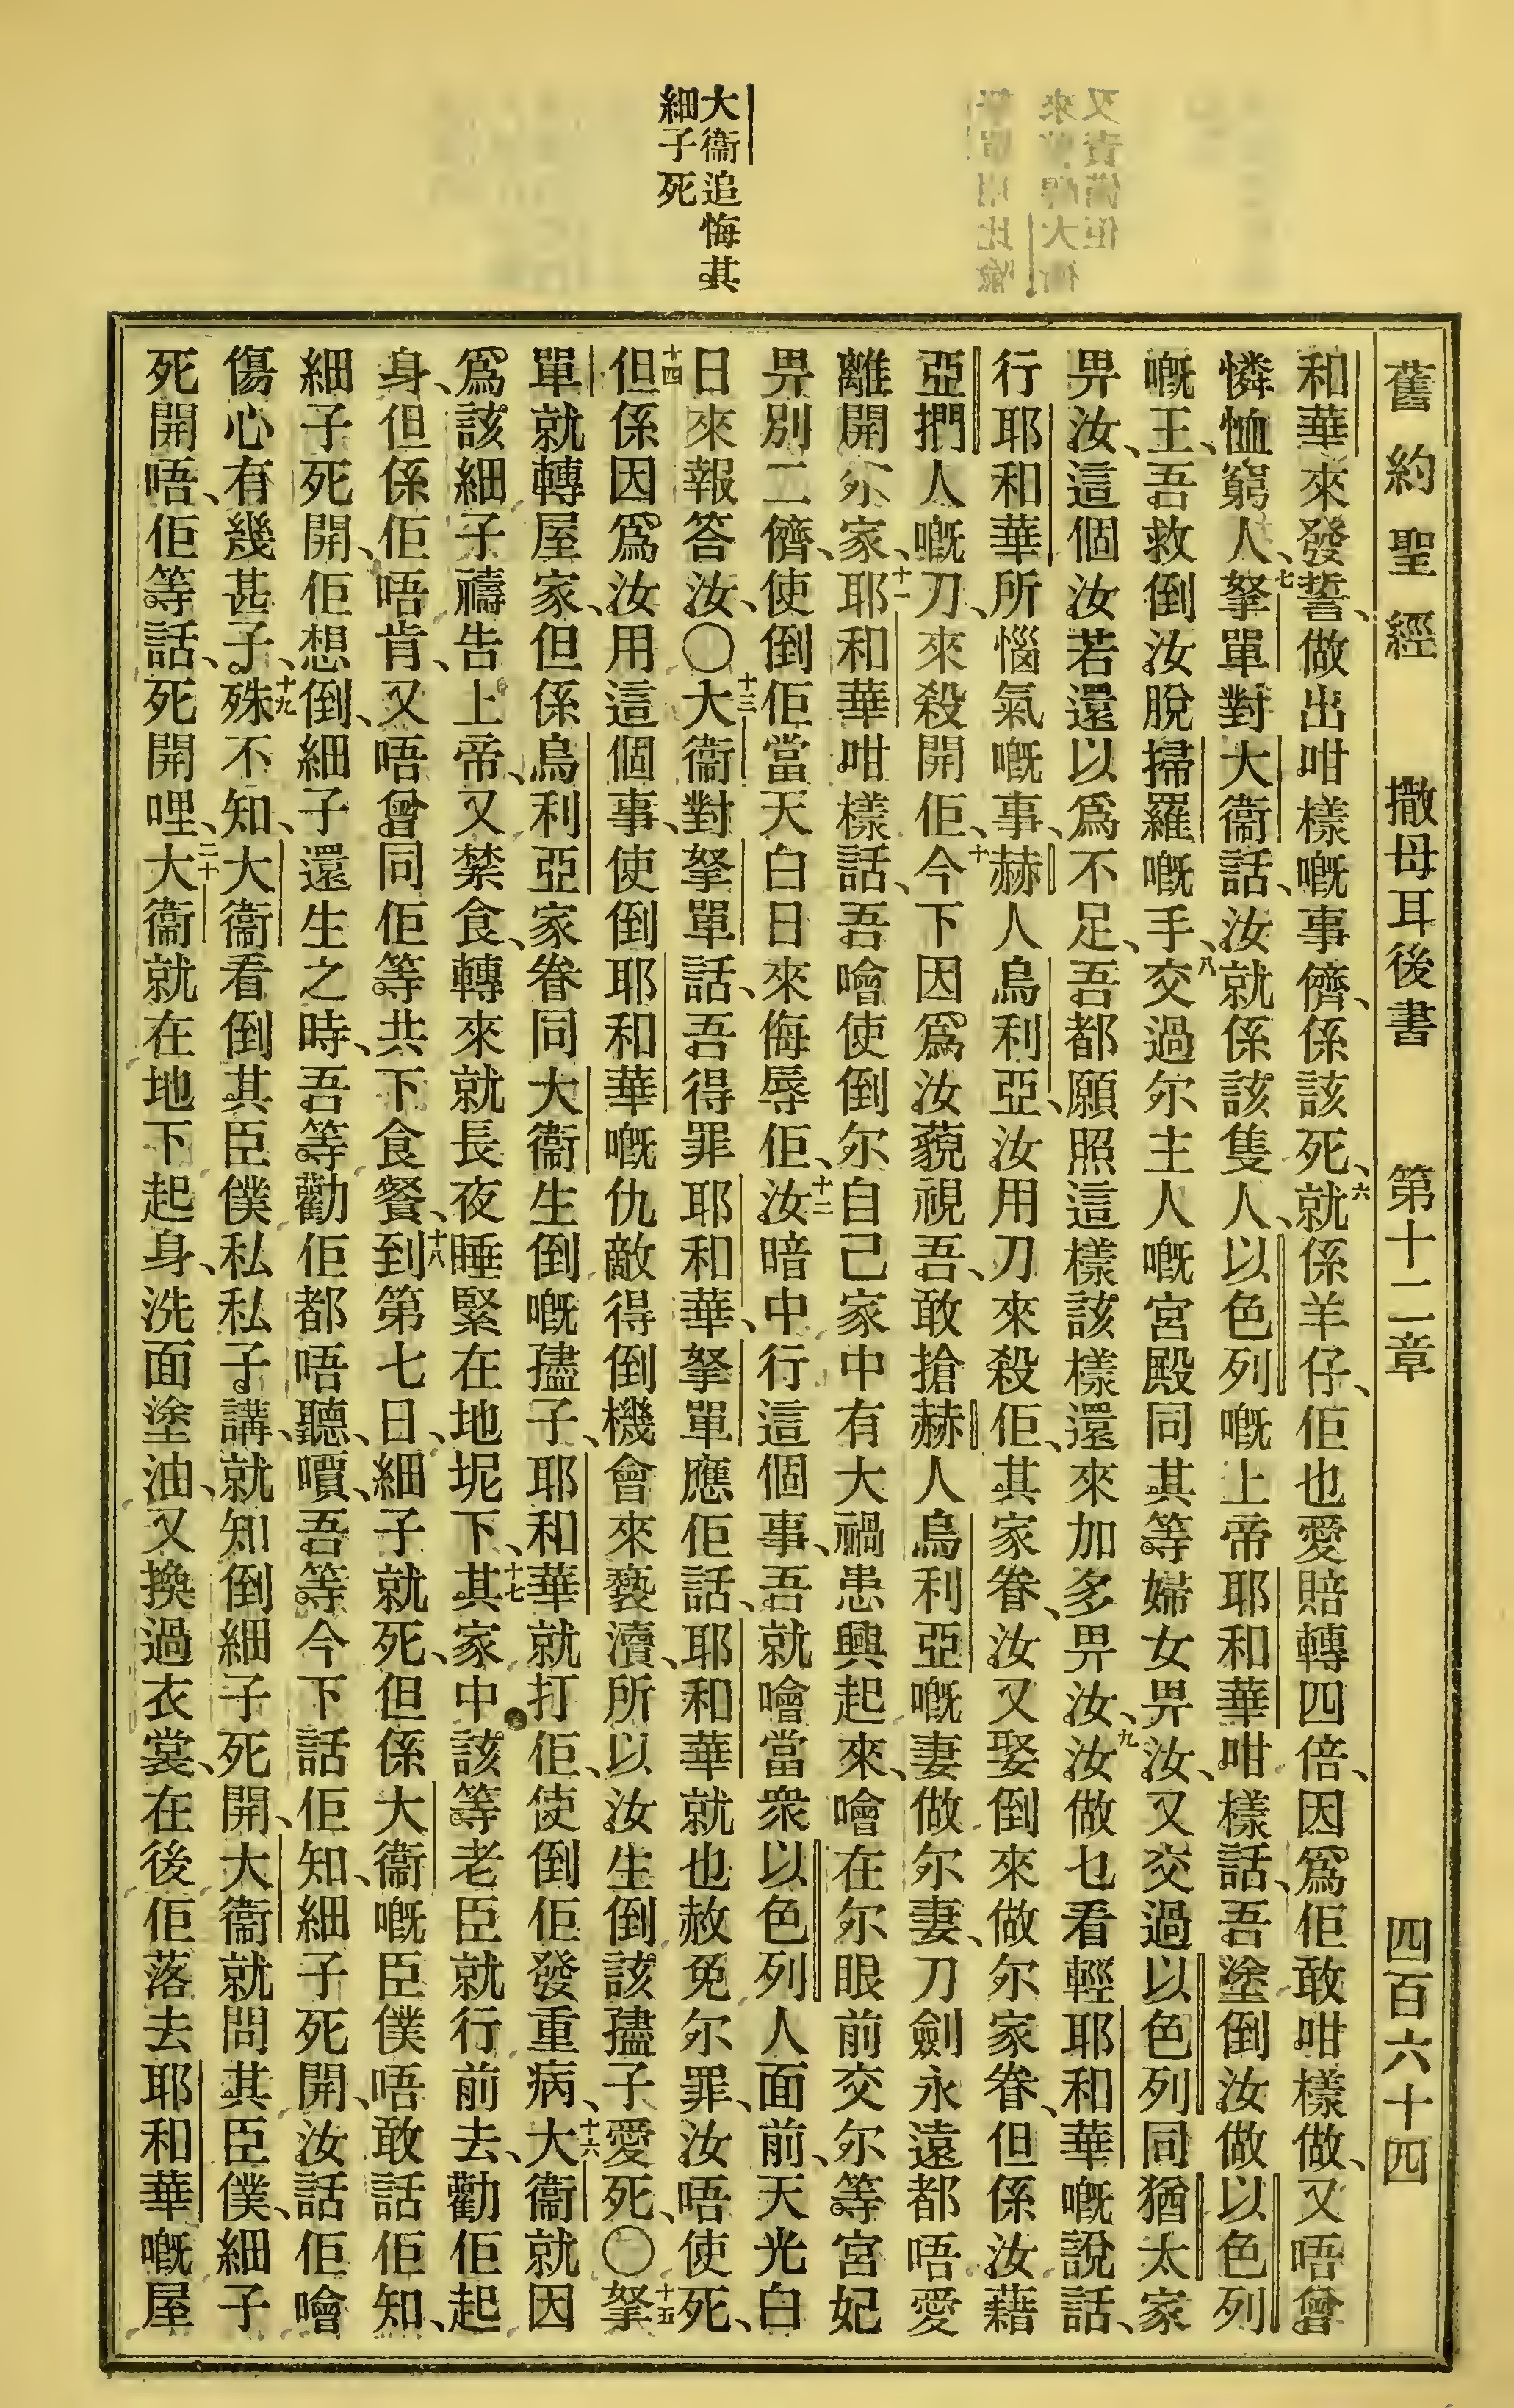 舊約聖經　撒母耳後書　第十二章　四百六十四
大衞追悔其
細子死
和華來發誓、做出咁樣嘅事儕、係該死、六就係羊仔、佢也愛賠轉四倍、因爲佢敢咁樣做、又唔曾
憐恤窮人、七拏單對大衞話、汝就係該隻人、以色列嘅上帝耶和華咁樣話、吾塗倒汝做以色列
嘅王、吾救倒汝脫掃羅嘅手、八交過尔主人嘅宮殿同其等婦女畀汝、又交過以色列同猶太家
畀汝、這個汝若還以爲不足、吾都願照這樣該樣還來加多畀汝、九汝做乜看輕耶和華嘅說話、
行耶和華所惱氣嘅事、赫人烏利亞、汝用刀來殺佢、其家眷、汝又娶倒來做尔家眷、但係汝藉
亞捫人嘅刀、來殺開佢、十今下因爲汝藐視吾、敢搶赫人烏利亞嘅妻做尔妻、刀劍永遠都唔愛
離開尔家、十一耶和華咁樣話、吾噲使倒尔自己家中有大禍患興起來、噲在尔眼前交尔等宮妃
畀別二儕、使倒佢當天白日來侮辱佢、十二汝暗中行這個事、吾就噲當衆以色列人面前、天光白
日來報答汝、〇十三大衞對拏單話、吾得罪耶和華、拏單應佢話、耶和華就也赦免尔罪、汝唔使死、
十四但係因爲汝用這個事、使倒耶和華嘅仇敵得倒機會來褻瀆、所以汝生倒該孻子愛死、〇十五拏
單就轉屋家、但係烏利亞家眷同大衞生倒嘅孻子、耶和華就打佢、使倒佢發重病、十六大衞就因
爲該細子禱告上帝、又禁食、轉來就長夜睡緊在地坭下、十七其家中該等老臣就行前去、勸佢起
身、但係佢唔肯、又唔曾同佢等共下食餐、十八到第七日、細子就死、但係大衞嘅臣僕唔敢話佢知、
細子死開、佢想倒、細子還生之時、吾等勸佢都唔聽、嘳、吾等今下話佢知、細子死開、汝話佢噲
傷心有幾甚子、十九殊不知、大衞看倒其臣僕私私子講、就知倒細子死開、大衞就問其臣僕、細子
死開唔、佢等話、死開哩、二十大衞就在地下起身、洗面塗油、又換過衣裳、在後佢落去耶和華嘅屋